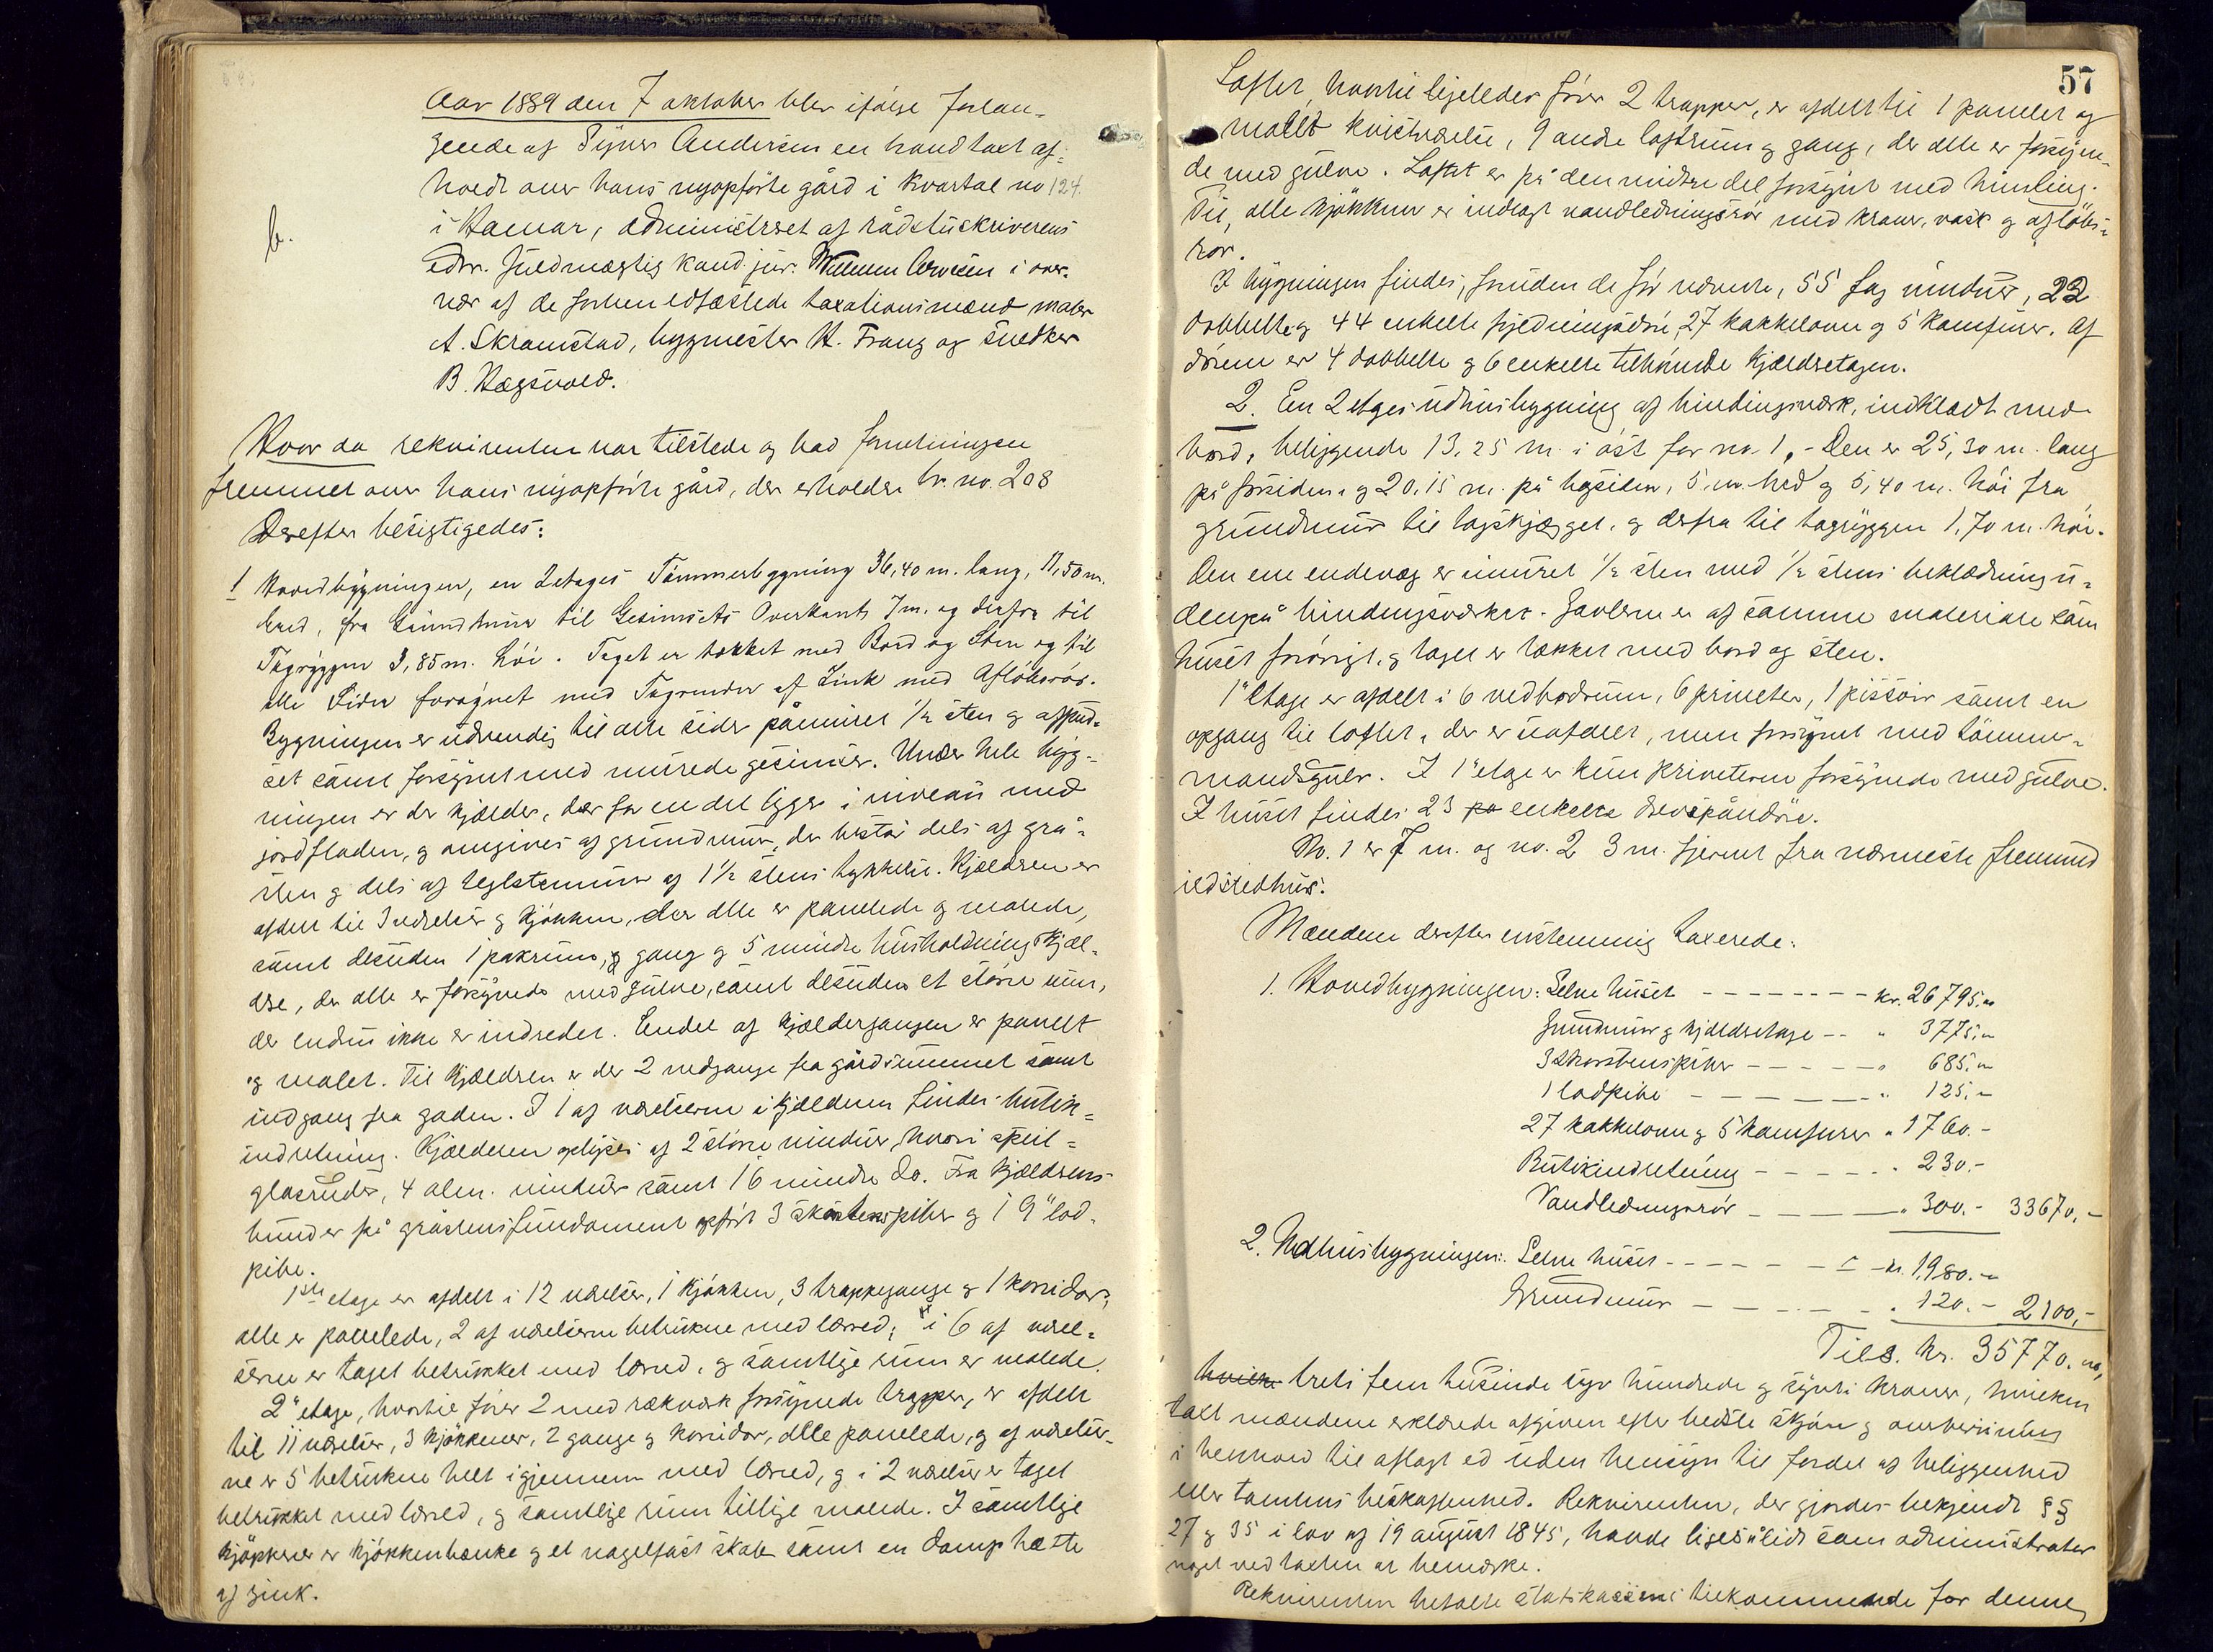 Aar 1889 den 7 oktober blev ifølge forlan-
gende af Syver Andersen en brandtaxt af-
holdt over hans nyopførte gård i kvartal no 124
i Hamar, administreret af rådstuskriverens
edsv. fuldmægtig kand. jur. i over-
vær af de forhen edfæstede taxationsmænd maler
A. Skramstad, bygmester H. Frang og snedker
B. Hagsvold.
b.
Hvor da rekvirenten var tilstede og bad forretningen
fremmet over hans nyopførte gård, der erholder br. no. 208
Derefter besigtigedes:
1 Hovedbygningen, en 2etages Tømmerbygning 36,40 m. lang, 11,50 m.
bred, fra Grundmur til Gesimsets Overkant 7 m. og derfra til
Tagryggen 3,85 m. høi. Taget er tækket med Bord og Sten og til
alle Sider forsynet med Tagrender af Zink med Afløbsrør.
Bygningen er udvendig til alle sider påmuret 1/2 sten og afpud-
set samt forsynet med murede gesimser. Under hele byg-
ningen er der kjelder, der for en del ligger i niveau med
jordfladen, og omgives af grundmur, der består dels af grå-
sten og dels af teglstensmur af 1 1/2 stens tykkelse. Kjælderen er
afdelt til 3 værelser og kjøkken, der alle er panelede og malede,
samt desuden 1 pakrum, og gang og 5 mindre husholdningskjæl-
dre, der alle er forsynede med gulve, samt desuden et større rum,
der endnu ikke er indredet. Endel af kjældergangen er panelt
og malet. Til kjælderen er der 2 nedgange fra gårdsrummet samt
indgang fra gaden. I 1 af værelserne i kjælderen findes butik-
indretning. Kjælderen oplyses af 2 større vinduer, hvori speil-
glasruder, 4 alm. vinduer samt 16 mindre do. Fra kjælderens
bund er på gråstensfundament opført 3 skorstenspiber og 1 9" lod-
pibe.
1ste etage er afdelt i 12 værelser, 1 kjøkken, 3 trappegange og 1 korridor,
alle er panelede, 2 af værelserne betrukne med lærred, i 6 af værel-
serne er taget betrukket med lærred, og samtlige rum er malede.
2" etage, hvortil fører 2 med rækværk forsynede trapper, er afdelt
til 11 værelser, 3 kjøkkener, 2 gange og korridor, alle panelede, og af værelser-
ne er 5 betrukne helt igjennem med lærred, og i 2 værelser er taget
betrukket med lærred, og samtlige rum tillige malede. I samtlige
kjøkkener er kjøkkenbænke og et nagelfast skab samt en damphætte
af zink.
57
Loftet, hvortil ligeledes fører 2 trapper, er afdelt til 1 panelet og
malet kvistværelse, 9 andre loftsrum og gang, der alle er forsyne-
de med gulve. Loftet er på den midtre del forsynt med himling.
Til alle kjøkkener er indlagt vandledningsrør med kraner, vask og afløbs-
rør.
I bygningen findes, foruden de før nævnte, 55 fag vinduer, 22
dobbelte og 44 enkelte fyldningsdøre, 27 kakkelovne og 5 komfurer. Af
dørene er 4 dobbelte og 6 enkelte tilhørende kjælderetagen.
2. En 2 etages udhusbygning af bindingsværk, indklædt med
bord, beliggende 13,25 m. i øst for no. 1. - Den er 25,30 m. lang
på forsiden og 20,15 m. på bagsiden, 5 m. bred og 5,40 m. høi fra
grundmur til tagskjægget, og derfra til tagryggen 1,70 m. høi.
Den ene endevæg er immuret 1/2 sten med 1/2 stens beklædning u-
denpå bindingsværket. Gavlene er af samme materiale som
huset forøvrigt, og taget er tækket med bord og sten.
1" etage er afdelt i 6 vedbodrum, 6 priveter, 1 pissoir samt en
opgang til loftet, der er uafdelt, men forsynet med tømmer-
mandsgulv. I 1" etage er kun priveterne forsynede med gulve.
I huset findes 23 enkelte dørspåndøre.
No. 1 er 7 m. og no. 2 3 m. fjernet fra nærmeste fremmed
ildstedhus.
Mændene derefter enstemmig taxerede:
1. Hovedbygningen: Selve huset - - - - - - - - kr. 26795.-
Grundmur og kjælderetage - - " 3775.-
3 skorstenspiber - - - - - " 685.-
1 lodpibe - - - - - - - " 125.-
27 kakkelovne og 5 komfurer " 1760.-
Butikindretning - - - - - - " 230.-
Vandledningsrør - - - - - " 300.- 33670,-
2. Udhusbygningen: Selve huset - - - - - - - kr. 1980.-
Grundmur - - - - - - " 120.- 2100,-
Tils. kr. 35770.00,
hvilk. treti fem tusinde syv hundrede og sytti kroner, hvilken
taxt mændene erklærede afgiven efter bedste skjøn og overbevisning
i henhold til aflagt ed uden hensyn til fordel af beliggenhed
eller tomtens beskaffenhed. Rekvirenten, der gjordes bekjendt §§
27 og 35 i lov af 19 august 1845, havde ligesålidt som administrator
noget ved taxten at bemærke.
Rekvirenten betalte statskassens tilkommende for denne